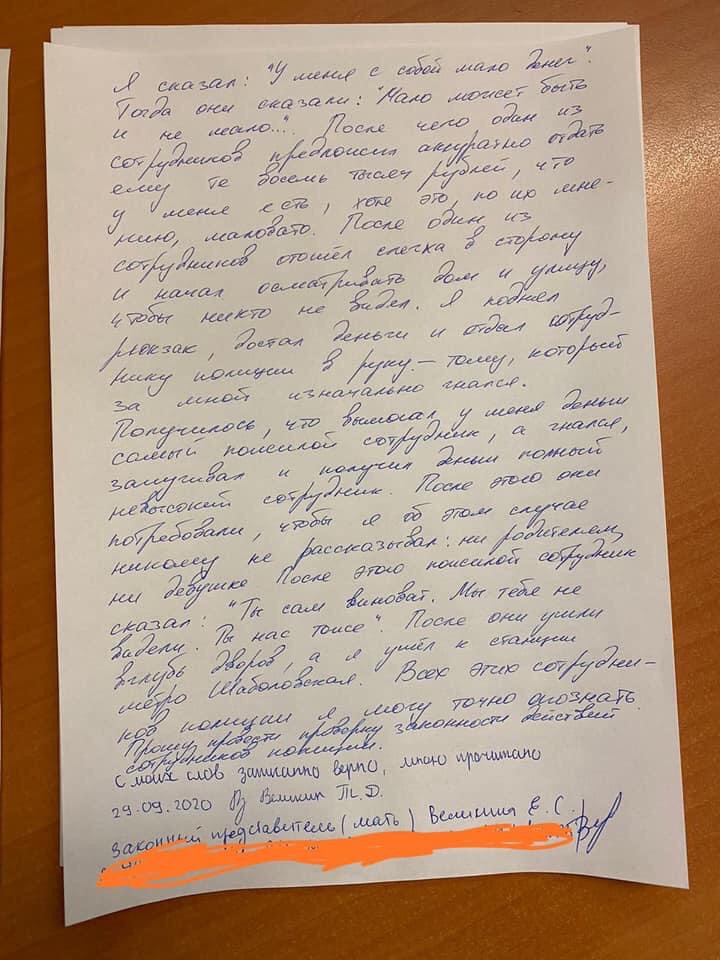 Я сказал: "У меня с собой мало денег".
Тогда они сказали: "Мало может быть
и не мало...". После чего один из
сотрудников предложил аккуратно отдать
ему те восемь тысяч рублей, что
у меня есть, хотя это, по их мне-
нию, маловато. После один из
сотрудников отошёл слегка в сторону
и начал осматривать дом и улицу,
чтобы никто не видел. Я поднял
рюкзак, достал деньги и отдал сотруд-
нику полиции в руку - тому, который
за мной изначально гнался.
Получилось, что вымогал у меня деньги
самый пожилой сотрудник, а гнался,
запугивал и получил деньги полный
невысокий сотрудник. После этого они
потребовали, чтобы я об этом случае
никому не рассказывал: ни родителям,
ни девушке. После этого пожилой сотрудник
сказал: "Ты сам виноват. Мы тебя не
видели. Ты нас тоже". После они ушли
вглубь дворов, а я ушёл к станции
метро Шаболовская. Всех этих сотрудни-
ков полиции я могу точно опознать.
Прошу провести проверку законности действий
сотрудников полиции.
С моих слов записано верно, мною прочитано
29.09.2020 Великин Т.Д.
Законный представитель (мать) Великина Е. С.